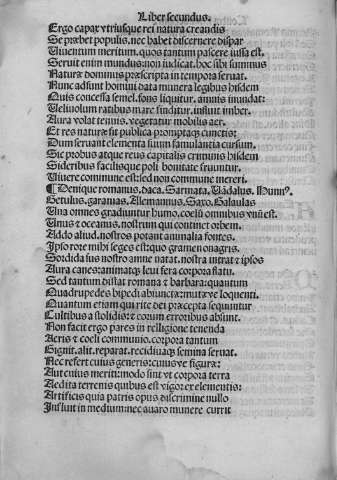 Liber secundus.
Ergo capax vtriusque rei natura creandis
Se præbet populis, nec habet discernere dispar
Viuentum meritum, quos tantum pascere iussa est.
Seruit enim mundus: non iudicat. hoc sibi summus
Naturæ dominus præscripta in tempora seruat.
Nunc adsunt homini data munera legibus hisdem
Quis concessa semel. fons liquitur. amnis inundat:
Veliuolum ratibus mare finditur. influit imber.
Aura volat tenuis. vegetatur mobilis aer.
Et res naturæ fit publica promptaq; cunctis:
Dum seruant elementa suum famulantia cursum.
Sic probus atque reus capitalis criminis hisdem
Sideribus facilisque poli bonitate fruuntur.
Viuere commune est: sed non commune mereri.
¶ Denique romanus, daca, Sarmata, Vādalus, Hunnꝰ.
Getulus, garamas, Allemannus, Saxo, Galaulas
Vna omnes gradiuntur humo, coelū omnibus vnū est.
Vnus & oceanus, nostrum qui continet orbem.
Addo aliud. nostros potant animalia fontes.
Ipso rore mihi seges est: quo gramen onagris.
Sordida sus nostro amne natat. nostra intrat & ipsos
Aura canes: animatq; leui fera corpora flatu.
Sed tantum distat romana & barbara: quantum
Quadrupedes bipedi abiuncta: muta ve loquenti.
Quantum etiam qui rite dei præcepta sequuntur
Cultibus a stolidis: & eorum erroribus absunt.
Non facit ergo pares in relligione tenenda
Aeris & coeli communio. corpora tantum
Gignit. alit. reparat. recidiuaq; semina seruat.
Nec refert cuius generis: cuius ve figuræ:
Aut cuius meriti: modo sint vt corpora terra
Aedita terrenis quibus est vigor ex elementis:
Artificus quia patris opus discrimine nullo
Influit in medium: nec auaro munere currit